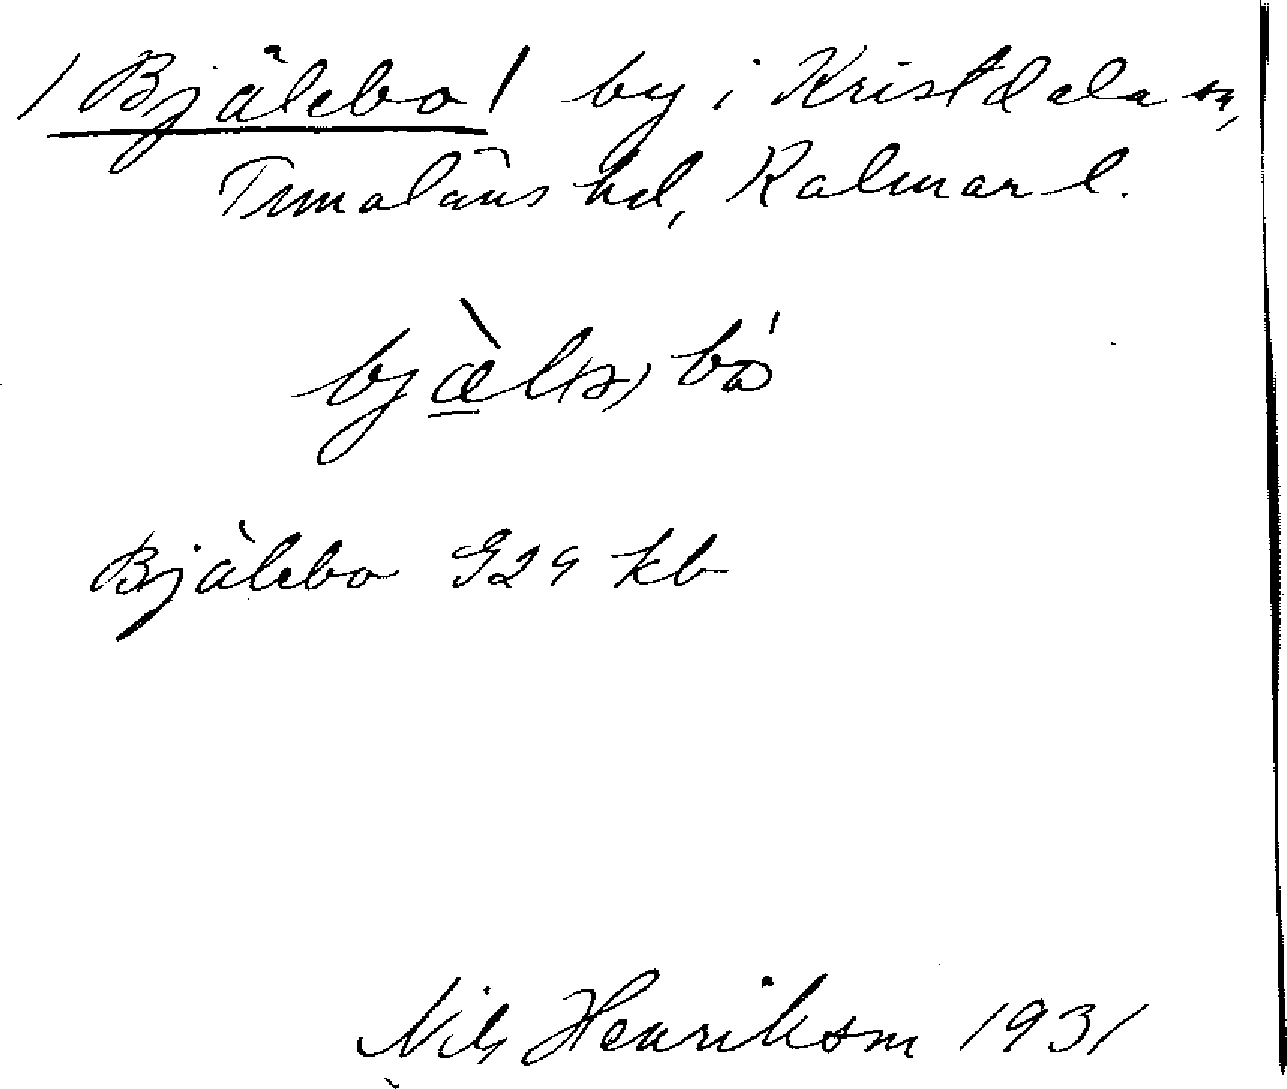 /Bjälebo/ by i Kristdala sn,
Tunaläns hd, Kalmar l.
Bjälebo G29 kb
Nils Henriksson 1931